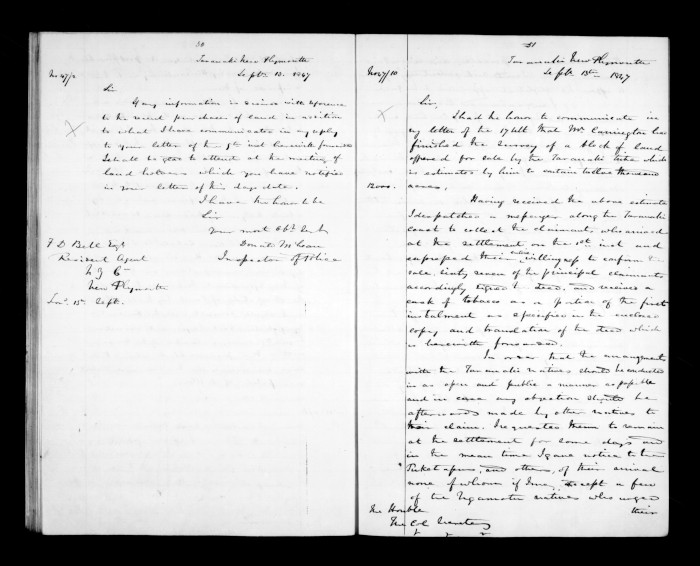 30
Taranaki New Plymouth
Septr 13. 1847
No 47/9
Sir
If any information is desired with reference
to the recent purchases of land in addition
to what I have communicated in my reply
to your letter of the 9th ind herewith forwarded
I shall be glad to attend at the meeting of
land holders which you have notified
in your letter of this days date.
I have the honor to be
Sir
Your most Obt. Servt
Donald McLean
Inspector of Police
F D Bell Esqr
Resident Agent
N Z Co
New Plymouth
15th Sept.
31
Taranaki New Plymouth
Septr 13th 1847
No 47/10
Sir,
I had the honor to communicate in
my letter of the 17 ult that Mr Carrington has
finished the survey of a block of land
offered for sale by the Taranaki tribe which
is estimated by him to contain twelve thousand
12000. acres,
Having received the above estimate
I despatched a messenger along the Taranaki
coast to collect the claimants, who arrived
at the settlement on the 1st inst and
expressed their entire willingness to confirm the
sale, sixty seven of the principal claimants
accordingly signed the deed, and received a
cask of tobacco as a portion of the first
instalment as specified in the enclosed
copy and translation of the deed which
is herewith forwarded.
In order that the arrangements
with the Taranaki natives should be conducted
in as open and public a manner as possible
and in case any objection should be
afterwards made by other natives to
their claim. I requested them to remain
at the settlement for some days and
in the mean time I gave notice to the
Puketapus, and others, of their arrival
none of whom if I may except a few
of the Ngamotu natives who urged
their
The Honble
The Col Secretary